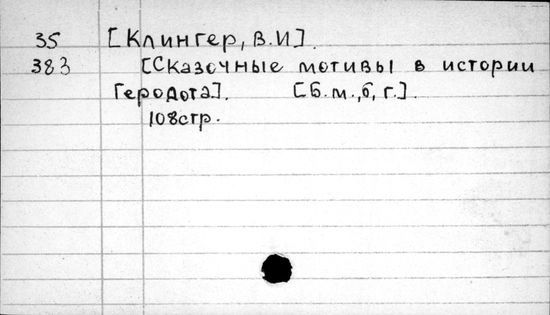 35 [Клингер, В.И].
383 [Сказочные мотивы в истории
Геродота]. [б.м.,б,г.].
108стр.